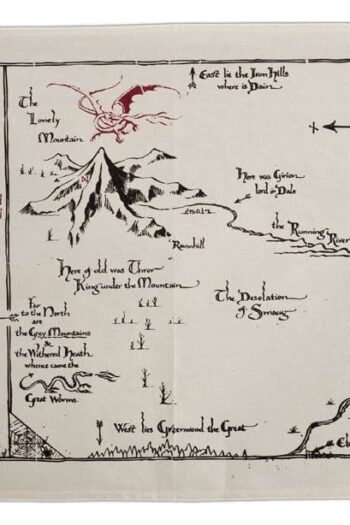 East lie the Iron Hills
where is Dain
The
Lonely
Mountain
Here was Girion
lord in Dale
the Running River
Ravenhill
Here of old was Thror
King under the Mountain
The Desolation
of Smaug
Far
to the North
are
the Grey Mountains
&
the Withered Heath
whence came the
Great Worms
West lies Greenwood the Great